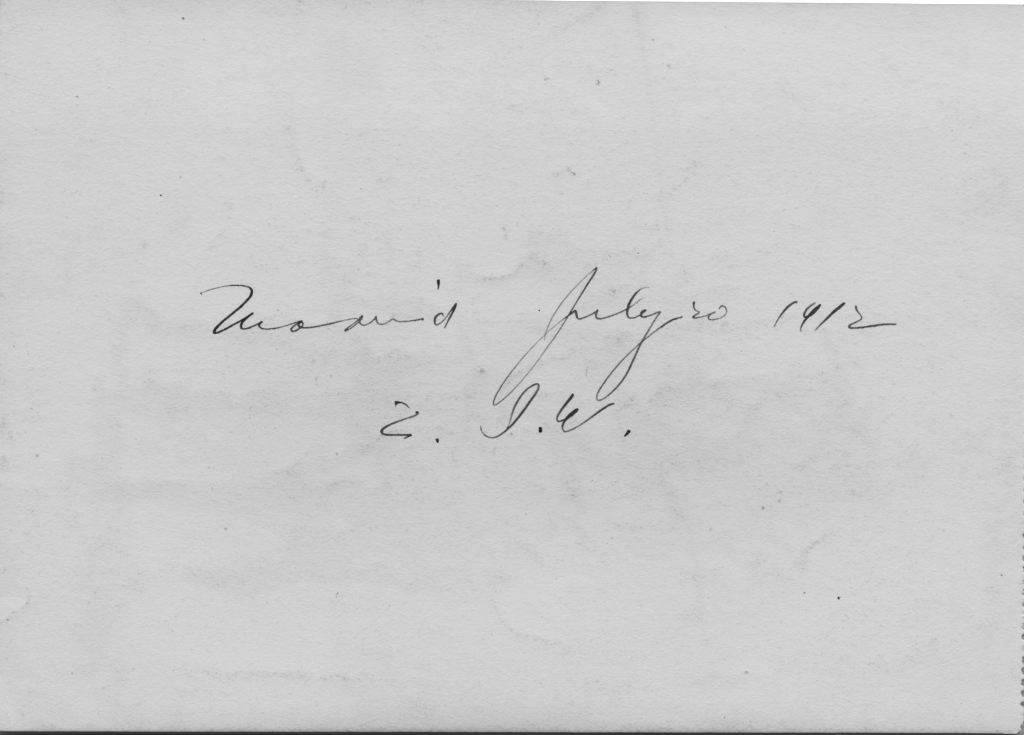 Madrid July 20 1912
I. W.